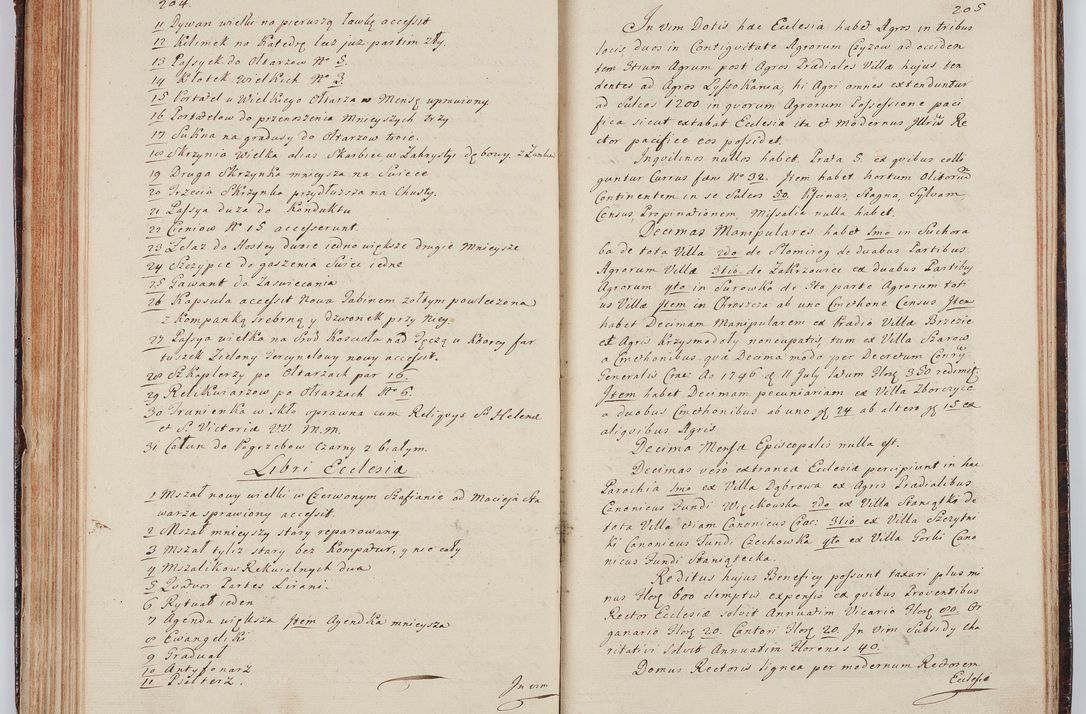 204.
11 Dywan wielki na pierwszą ławkę accessit
12 Kilimek na Katedrę lecz już partim zły.
13 Passyek do Ołtarzow Nº 5.
14 Klatek Wielkich Nº 3
15 Portatel u Wielkiego Ołtarza w Mensę wprawiony
16 Portatelow do przenoszenia Mnieyszych trzy
17 Sukna na gradusy do Ołtarzow troie.
18 Skrzynia Wielka alias Skarbiec w Zakrystyi dębowy z
19 Druga Skrzynka mnieysza na Swiece
20 Trzecia Skrzynka przydłuższa na Chusty.
21 Passya duża do Konduktu
22 Ceniow Nº 15 accesserunt.
23 Zelaz do Hostey dwoie iedno większe drugie Mnieysze
24 Szczypce do gaszenia Swiec iedne
25 Gaivant do Zaswiecania
26 Kapsuła accessit Nova Tabinem zołtym powleczona
z Kompanką srebrną y dzwonek przy Niey.
27 Passya wielka na Srod Koscioła nad Tęczą u ktorey far
tuszek Zielony Porcynelowy nowy accessit.
28 Szkaplerzy po Ołtarzach par 16
29 Relikwiarzow po Ołtarzach Nº 6.
30 Trunienka w szkło oprawna cum Reliqvys S. Helenæ
et S. Victoriæ VV. M.M.
31 Całun do Pogrzebow Czarny z białym.
Libri Ecclesiæ
1 Mszał nowy wielki w Czerwonym Szafianie od Macieja
warza sprawiony accessit.
2 Mszał mnieyszy stary reparowany
3 Mszał tyliz stary bez Kompatur, y nie cały
4 Mszalikow Rekwialnych dwa
5 Quatvor Partes Lirani.
6 Rytuał ieden
7 Agenda większa Item Agendka mnieysza
8 Ewangeliki
9 Graduał
10 Antyfonarz
11 Psalterz.
In vim
205
In vim Dotis hæc Ecclesia habet Agros in tribus
locis duos in Contiguitate Agrorum Czyzow ad occiden
tem 3tium Agrum post Agros Prædiales Villæ hujus ten
dentes ad Agros Lyssokaniæ, hi Agri omnes extenduntur
ad sulcos 1200 in quorum Agrorum Possessione paci
fica sicut extabat Ecclesia ita et Modernus Jllris Re
ctor pacifice eos possidet.
Inqvilinos nullos habet. Prata 5. ex qvibus colli
guntur Currus fæni Nº 32. Item habet hortum Olitorium
Continentem in se Sulcos 50. Piscinas, Stagna, Sylvam
Census, Propinationem, Missalia nulla habet.
Decimas Manipulares habet 1mo in Suchora
ba de tota Villa 2do de Słomirog de duabus Partibus
Agrorum Villæ 3tio de Zakrzowiec ex duabus Partibus
Agrorum 4to in Surowka de 3ta parte Agrorum toti
us Villæ Item in Chroszcza ab uno Cmethone Census Item
habet Decimam Manipularem ex Prædio Villæ Brzezie
ex Agris Krzysmodoły noncupatis, tum ex Villa Szarow
a Cmethonibus qvæ Decima modo per Decretum Consij
Generalis Crac: Ao 1746 d 11 July latum flor 350 redimitur
Item habet Decimam pecuniariam ex Villa Zborczyce
a duobus Cmethonibus ab uno gr 24 ab altero gr 15 ex
aliqvibus Agris
Decima Mensæ Episcopalis nulla est.
Decimas verò extraneæ Ecclesiæ percipiunt in hac
Parochia 1mo ex Villa Dąbrowa ex Agris Prædialibus
Canonicus Fundi Więckowska 2do ex Villa Staniątki de
tota Villa etiam Canonicus Crac: 3tio ex Villa Szczytni
ki Canonicus Fundi Czechowska 4to ex Villa Gorki Cano
nicus Fundi Staniątecka.
Reditus hujus Beneficy possunt taxari plus mi
nus flor 600 demptis expensis ex qvibus Proventibus
Rector Ecclesiæ solvit Annuatim Vicario flor 60. Or
ganario flor 20. Cantori flor 20. In vim Subsidy cha
ritativi solvit Annuatim florenos 40.
Domus Rectoris lignea per modernum Rectorem
Ecclesiæ